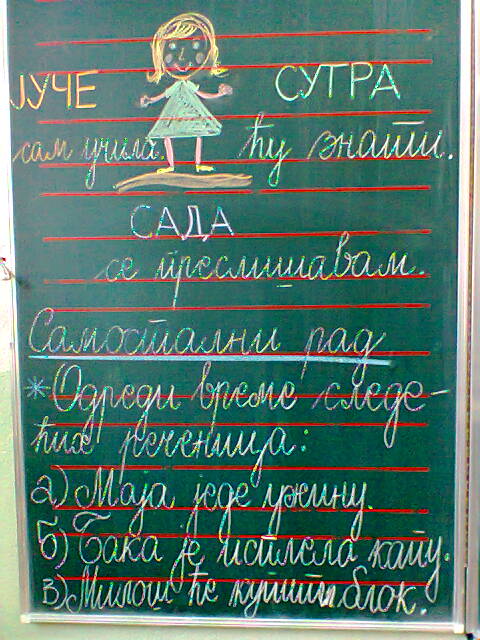 ЈУЧЕ СУТРА
сам учила. ћу знати.
САДА
се преслишавам.
Самостални рад
*Одреди време следе-
ћих реченица:
а) Маја једе ужину.
б) Бака је исплела капу.
в) Милош ће купити блок.